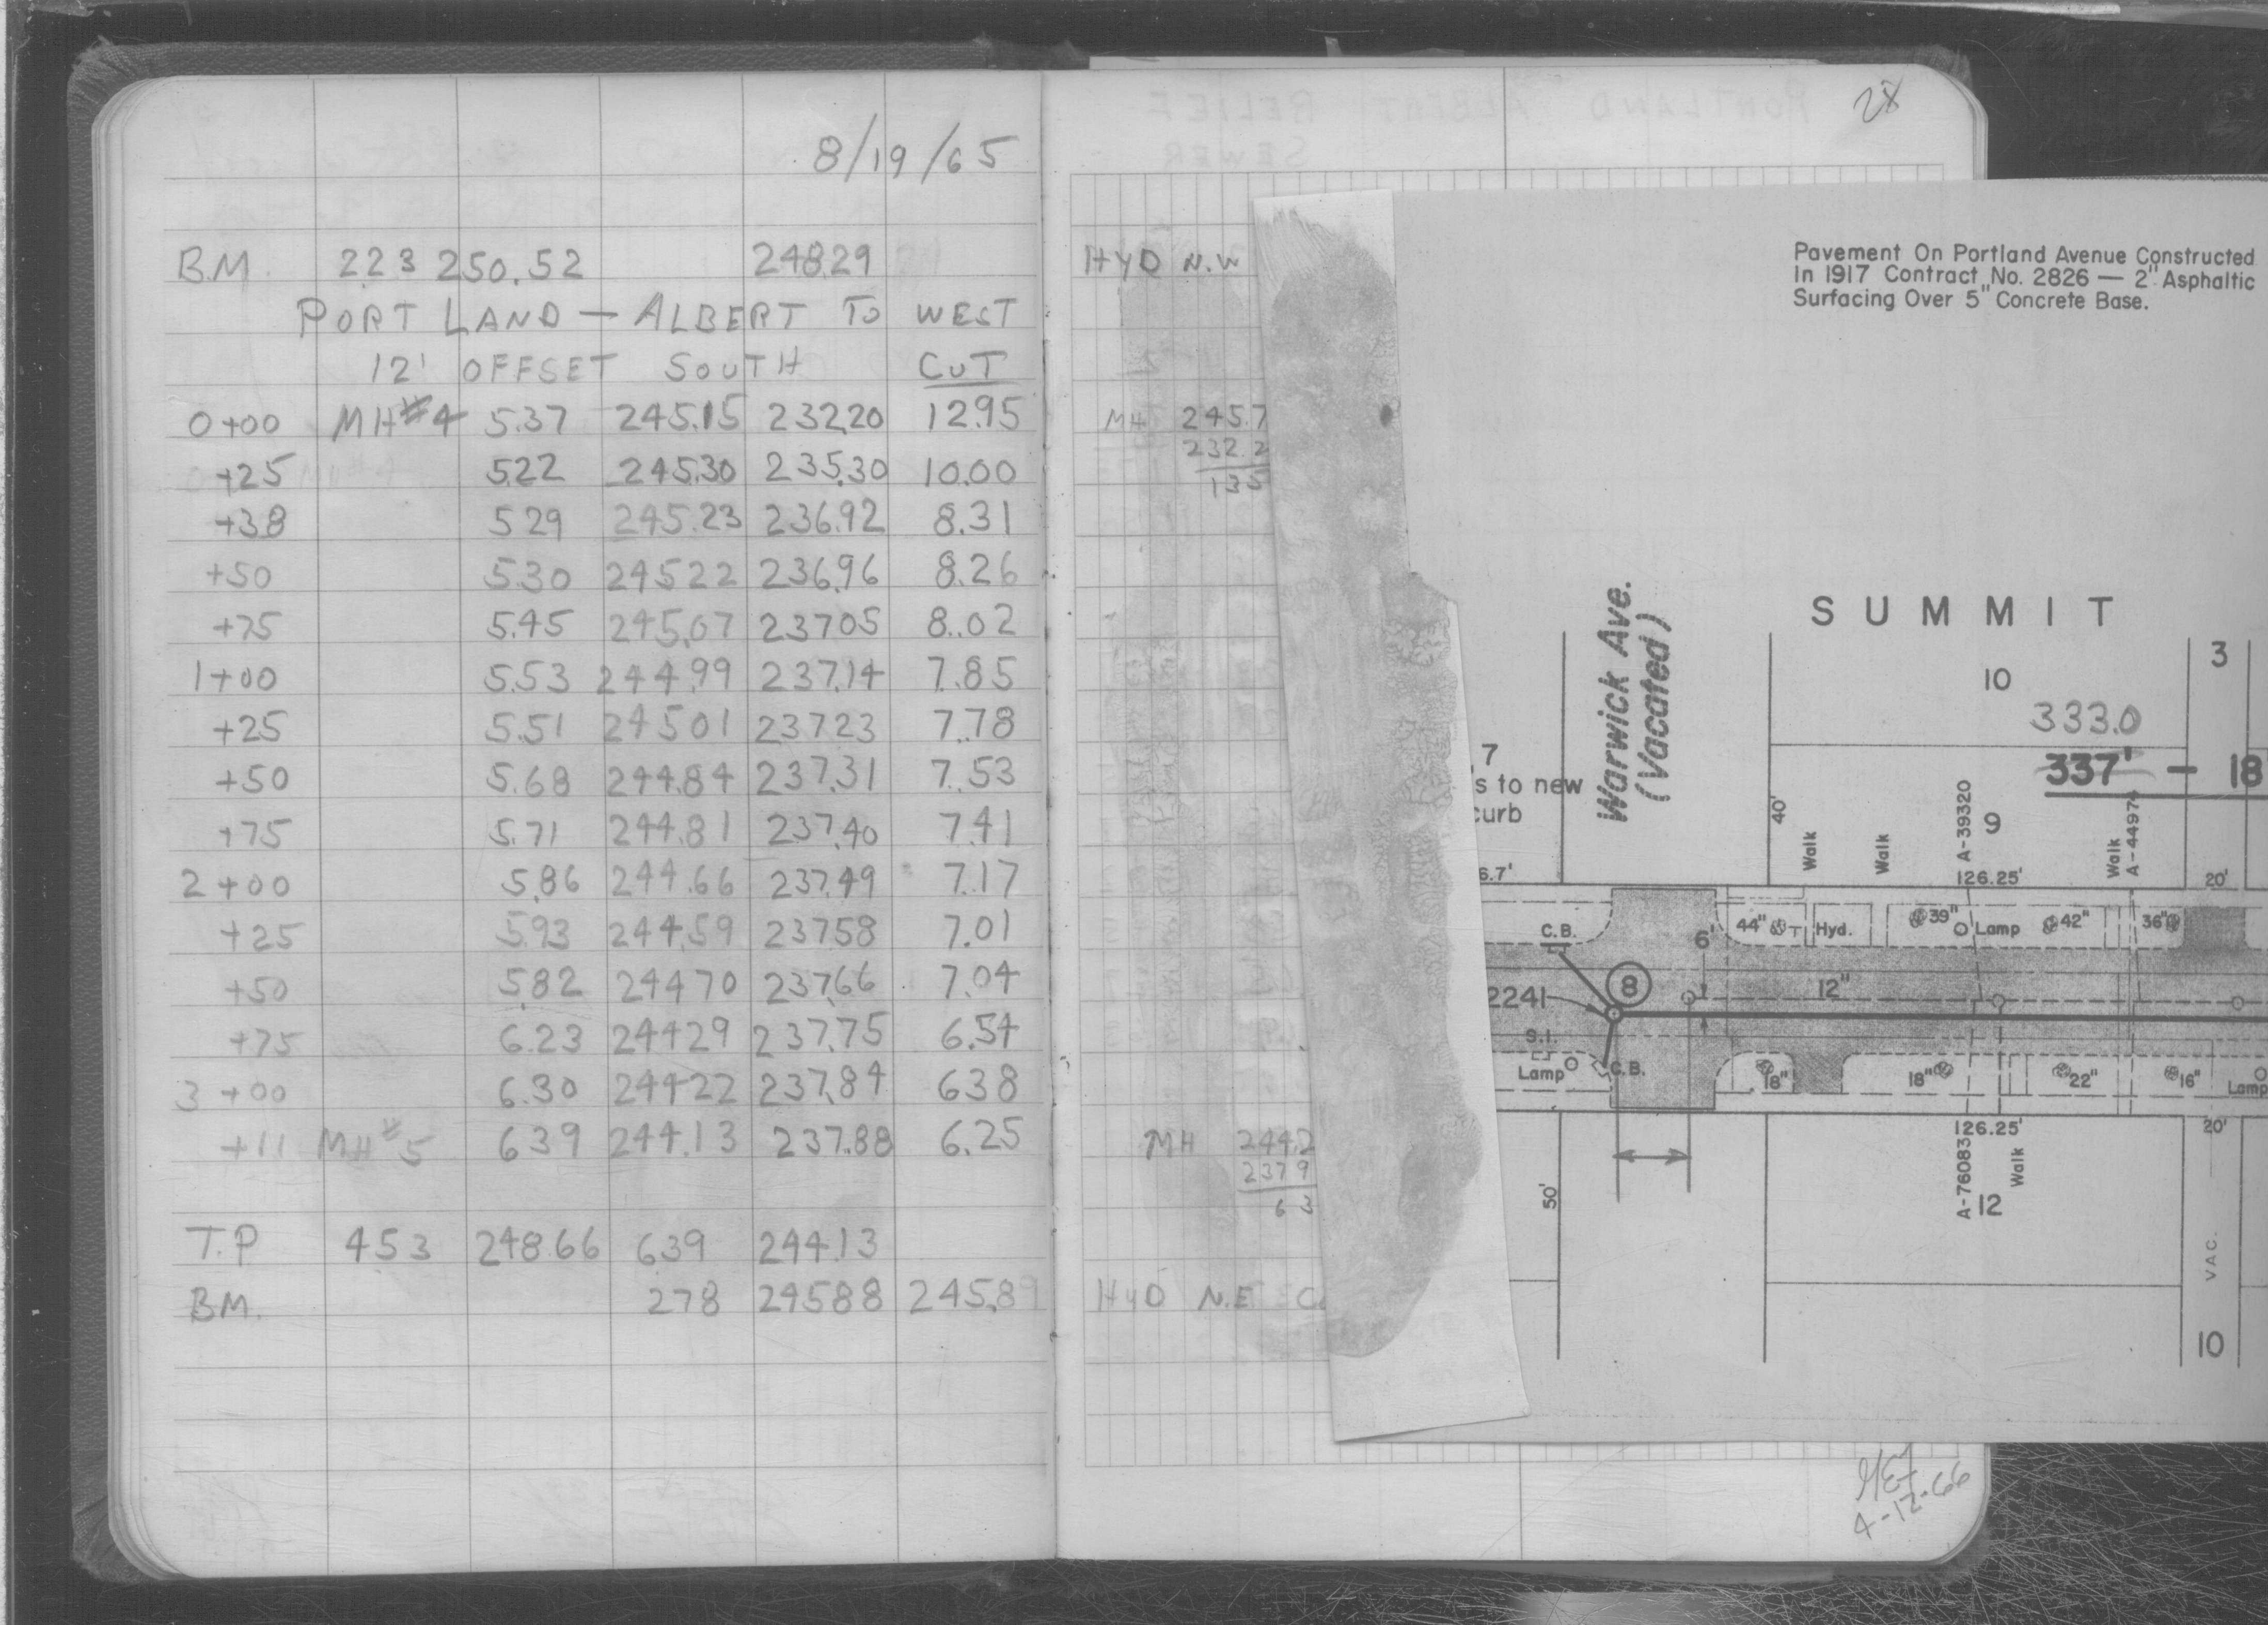 8/19/65
B.M. 223 250.52 248.29
PORTLAND — ALBERT TO WEST
12' OFFSET SOUTH CUT
0+00 MH#4 5.37 245.15 232.20 12.95
+25 5.22 245.30 235.30 10.00
+38 5.29 245.23 236.92 8.31
+50 5.30 245.22 236.96 8.26
+75 5.45 245.07 237.05 8.02
1+00 5.53 244.99 237.14 7.85
+25 5.51 245.01 237.23 7.78
+50 5.68 244.84 237.31 7.53
+75 5.71 244.81 237.40 7.41
2+00 5.86 244.66 237.49 7.17
+25 5.93 244.59 237.58 7.01
+50 5.82 244.70 237.66 7.04
+75 6.23 244.29 237.75 6.54
3+00 6.30 244.22 237.84 6.38
+11 MH#5 6.39 244.13 237.88 6.25
T.P 4.53 248.66 6.39 244.13
B.M. 2.78 245.88 245.89
28
HYD N.W
MH 245.7
232.2
13.5
MH 244.2
237.9
6.3
HYD N.E
4-12-66
Pavement On Portland Avenue Constructed
In 1917 Contract No. 2826 — 2" Asphaltic
Surfacing Over 5" Concrete Base.
Warwick Ave.
(Vacated)
SUMMIT
10
3
333.0
337' - 18
7
s to new
curb
40'
Walk
Walk
A-39320
9
Walk
A-44974
6.7'
126.25'
20'
C.B.
44"
Hyd.
39"
Lamp
42"
36"
6'
8
12"
2241
S.I.
Lamp
C.B.
18"
18"
22"
16"
Lamp
126.25'
20'
50'
A-76083
Walk
12
VAC.
10